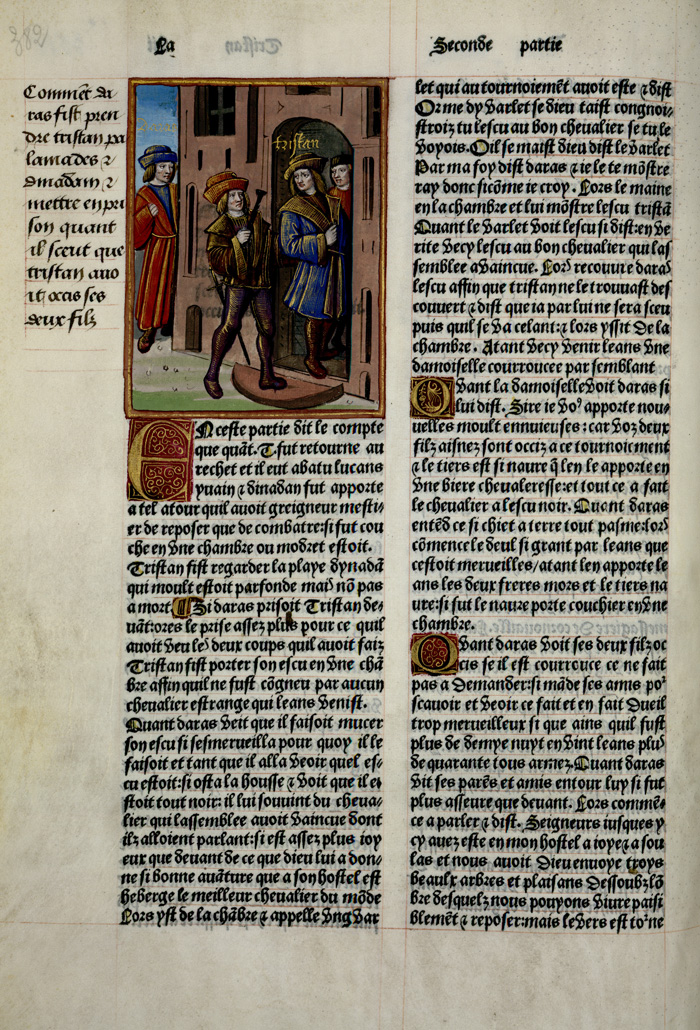 382
La
Seconde partie
Comment da
ras fist pren
dre tristan pa
lamades ⁊
dinadam ⁊
mettre en pri
son quant
il sceut que
tristan avo
it occis ses
deux filz
tristan
EN ceste partie dit le compte
que quāt. T. fut retourne au
rechet et il eut abatu lucans
yuain ⁊ dinadan fut apporte
a tel atour quil auoit greigneur mesti-
er de reposer que de combatre: si fut cou
che en vne chambre ou modret estoit.
Tristan fist regarder la playe dynadā
qui moult estoit parfonde mais nō pas
a mort. Si daras prisoit Tristan de-
uāt: ores le prise assez plus pour ce quil
auoit veu les deux coups quil auoit faiz
Tristan fist porter son escu en vne chā
bre affin quil ne fust cōgneu par aucun
cheualier estrange qui leans venist.
Quant daras veit que il faisoit mucer
son escu si sesmerueilla pour quoy il le
faisoit et tant que il alla veoir quel es-
cu estoit: si osta la housse ⁊ voit que il e-
stoit tout noir: il lui souuint du cheua-
lier qui lassemblee auoit vaincue dont
ilz alloient parlant: si est assez plus ioy
eux que deuant de ce que dieu lui a don-
ne si bonne auāture que a son hostel est
heberge le meilleur cheualier du mōde
Lors yst de la chābre ⁊ appelle vng var
let qui au tournoiemēt auoit este ⁊ dist
Or me dy varlet se dieu taist congnoi-
stroiz tu lescu au bon cheualier se tu le
voyois. Oil se maist dieu dist le varlet
Par ma foy dist daras ⁊ ie le te mōstre
ray donc sicōme ie croy. Lors le maine
en la chambre et lui mōstre lescu tristā
Quant le varlet voit lescu si dist: en ve
rite vecy lescu au bon cheualier qui las
semblee a vaincue. Lors recouure daras
lescu affin que tristan ne le trouuast des
couuert ⁊ dist que ia par lui ne sera sceu
puis quil se va celant: ⁊ lors yssit de la
chambre. Atant vecy venir leans vne
damoiselle courroucee par semblant
Quant la damoiselle voit daras si
lui dist. Sire ie voꝰ apporte nou-
uelles moult ennuieuses: car voz deux
filz aisnez sont occiz a ce tournoiement
⁊ le tiers est si naure q̄ len le apporte en
vne biere cheualeresse: et tout ce a fait
le cheualier a lescu noir. Quant daras
entēd ce si chiet a terre tout pasme: lors
cōmence le deul si grant par leans que
cestoit merueilles/ atant len apporte le
ans les deux freres mors et le tiers na
ure: si fut le naure porte couchier en vne
chambre.
Quant daras voit ses deux filz oc
cis se il est courrouce ce ne fait
pas a demander: si māde ses amis poꝰ
scauoir et veoir ce fait et en fait dueil
trop merueilleux si que ains quil fust
plus de demye nuyt en vint leans plus
de quarante tous armez. Quant daras
vit ses parēs et amis entour luy si fut
plus asseure que deuant. Lors commē-
ce a parler ⁊ dist. Seigneurs iusques y
cy auez este en mon hostel a ioye ⁊ a sou
las et nous auoit dieu enuoye troys
beaulx arbres et plaisans dessoubz lō
bre desquelz nous pouyons viure paisi
blemēt ⁊ reposer: mais le vers est toꝛne